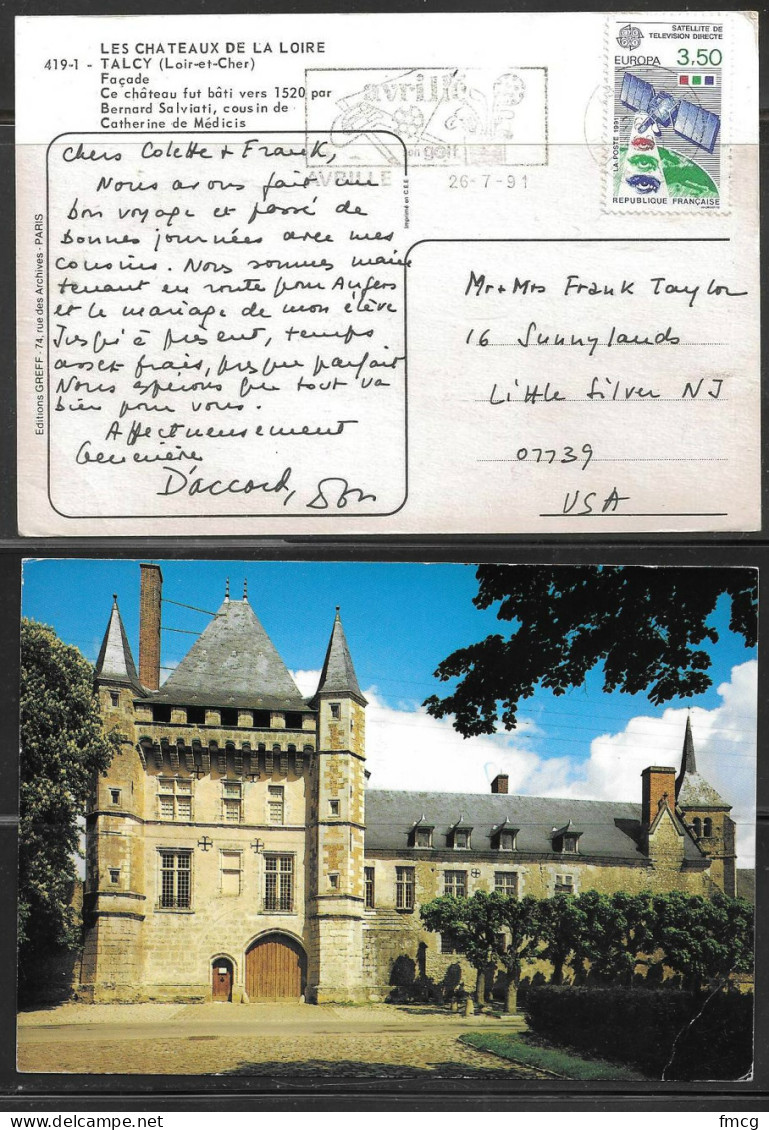 LES CHATEAUX DE LA LOIRE
419-1 - TALCY (Loir-et-Cher)
Façade
Ce château fut bâti vers 1520 par
Bernard Salviati, cousin de
Catherine de Médicis
avrillé
en golf
AVRILLE 26-7-91
SATELLITE DE
TELEVISION DIRECTE
EUROPA 3,50
LA POSTE 1991
REPUBLIQUE FRANÇAISE
Imprimé en C.E.E
Editions GREFF - 74, rue des Archives - PARIS
Chers Colette + Frank,
Nous avons fait un
bon voyage et passé de
bonnes journées avec mes
cousins. Nous sommes main
tenant en route pour Angers
et le mariage de mon élève
Jusqu'à présent, temps
assez frais, presque parfait
Nous espérons que tout va
bien pour vous.
Affectueusement
Geneviève
D'accord, Don
Mr + Mrs Frank Taylor
16 Sunnylands
Little Silver NJ
07739
USA
fmcg